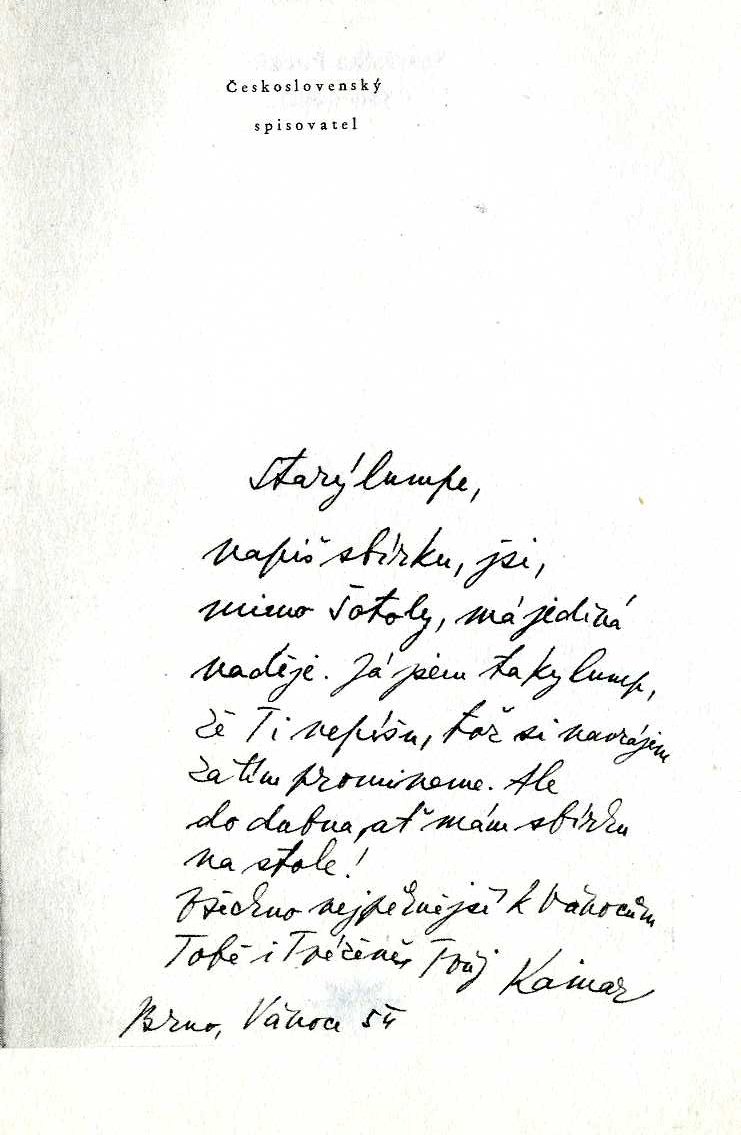 Československý
spisovatel
Starý lumpe,
napiš sbírku, jsi,
mimo Šotoly, má jediná
naděje. Já jsem taky lump,
že Ti nepíšu, tož si navzájem
zatím promineme. Ale
do dubna, ať mám sbírku
na stole!
Všechno nejpěknější k Vánocům
Tobě i Tvé ženě Tvůj Kainar
Brno, Vánoce 54